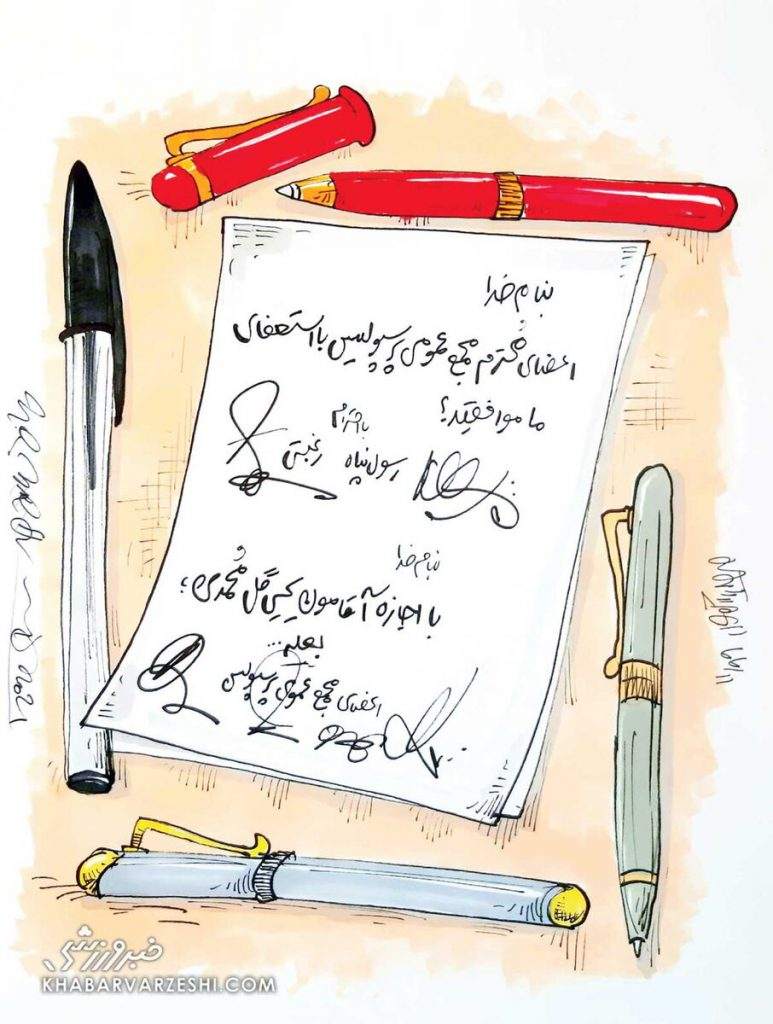 بنام خدا
اعضای محترم مجمع عمومی پرسپولیس با استعفای
ما موافقید؟
با احترام
رسول پناه رغبتی
بنام خدا
با اجازه آقامون یحیی گل محمدی؛
بعله...
اعضای مجمع عمومی پرسپولیس
2021
خبرورزشی
KHABARVARZESHI.COM